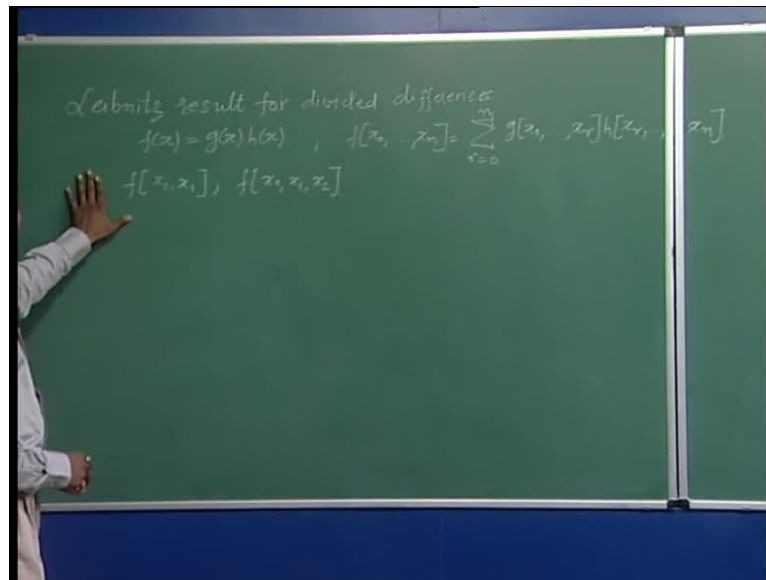 Leibnitz result for divided differences
f(x) = g(x) h(x) , f[x₀, ..., xₙ] = ∑ᵣ₌₀ⁿ g[x₀, ..., xᵣ] h[xᵣ, ..., xₙ]
f[x₀, x₁], f[x₀, x₁, x₂]